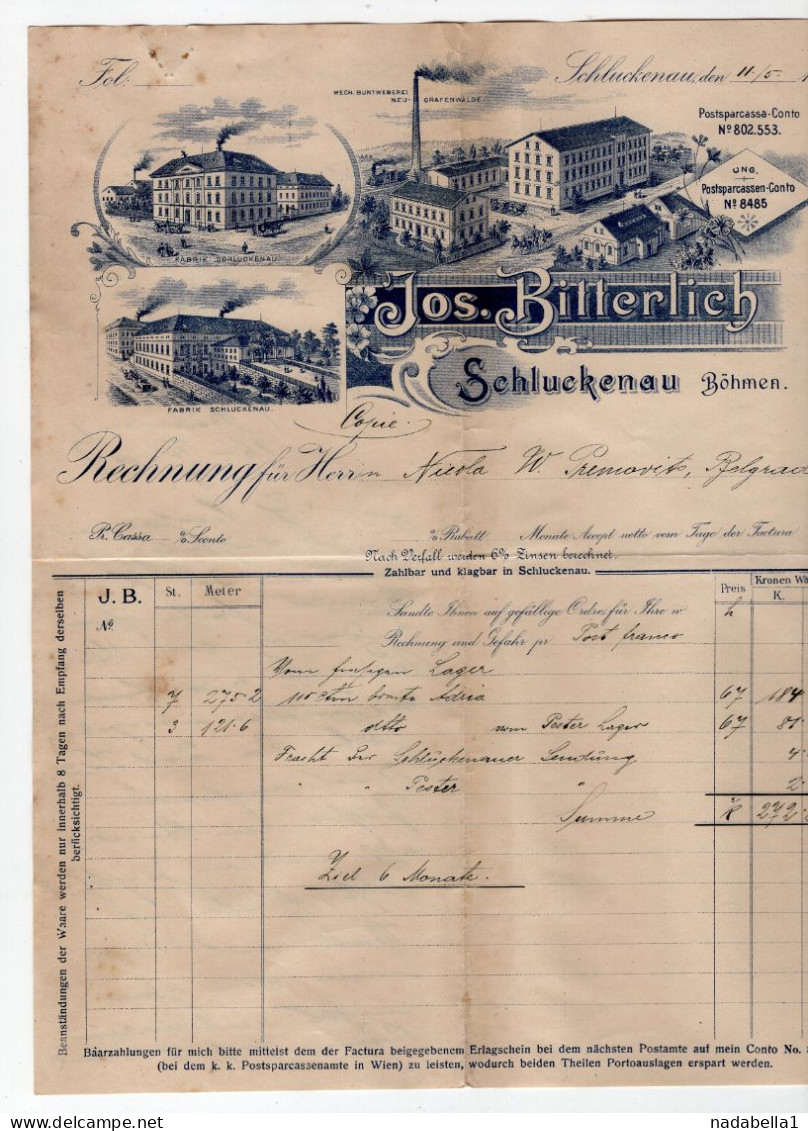 Fol:
Schluckenau, den 11./5. 1
MECH. BUNTWEBEREI
NEU- GRAFENWALDE
Postsparcassa-Conto
Nº 802.553.
UNG.
Postsparcassen-Conto
Nº 8485
FABRIK SCHLUCKENAU.
FABRIK SCHLUCKENAU.
Jos. Bitterlich
Schluckenau Böhmen.
Copie.
Rechnung für Herrn Nicola W. Premovits, Belgrad
Pr. Cassa % Sconto % Rabatt Monate Accept netto vom Tage der Factura
Nach Verfall werden 6% Zinsen berechnet.
Zahlbar und klagbar in Schluckenau.
J. B. St. Meter Preis Kronen Wä
Nº h K.
Sandte Ihnen auf gefällige Ordre, für Ihre w
Rechnung und Gefahr pr Post franco
Vom Lager
7 275·2 Adria 67 184
3 121·6 dtto vom Pester Lager 67 81
Fracht der Schluckenauer Sendung 4
" " Pester " 2
Summe K 272
Ziel 6 Monate.
Beanständungen der Waare werden nur innerhalb 8 Tagen nach Empfang derselben
berücksichtigt.
Baarzahlungen für mich bitte mittelst dem der Factura beigegebenem Erlagschein bei dem nächsten Postamte auf mein Conto No.
(bei dem k. k. Postsparcassenamte in Wien) zu leisten, wodurch beiden Theilen Portoauslagen erspart werden.
nadabella1